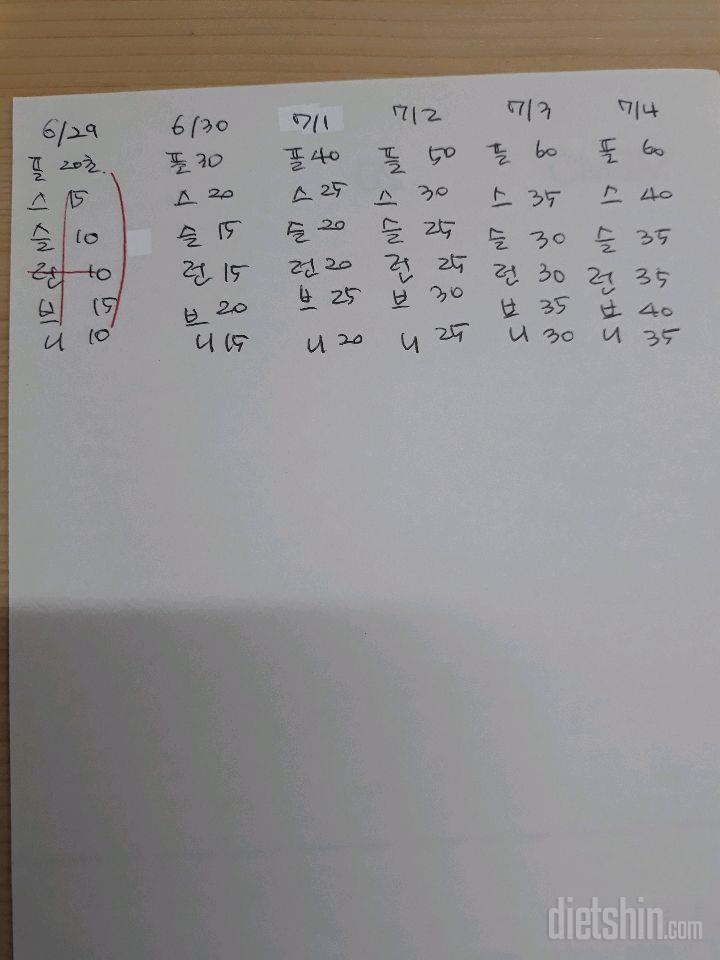 6/29 6/30 7/1 7/2 7/3 7/4
플 20초. 플 30 플 40 플 50 플 60 플 60
스 15 스 20 스 25 스 30 스 35 스 40
슬 10 슬 15 슬 20 슬 25 슬 30 슬 35
런 10 런 15 런 20 런 25 런 30 런 35
브 15 브 20 브 25 브 30 브 35 브 40
니 10 니 15 니 20 니 25 니 30 니 35
dietshin.com